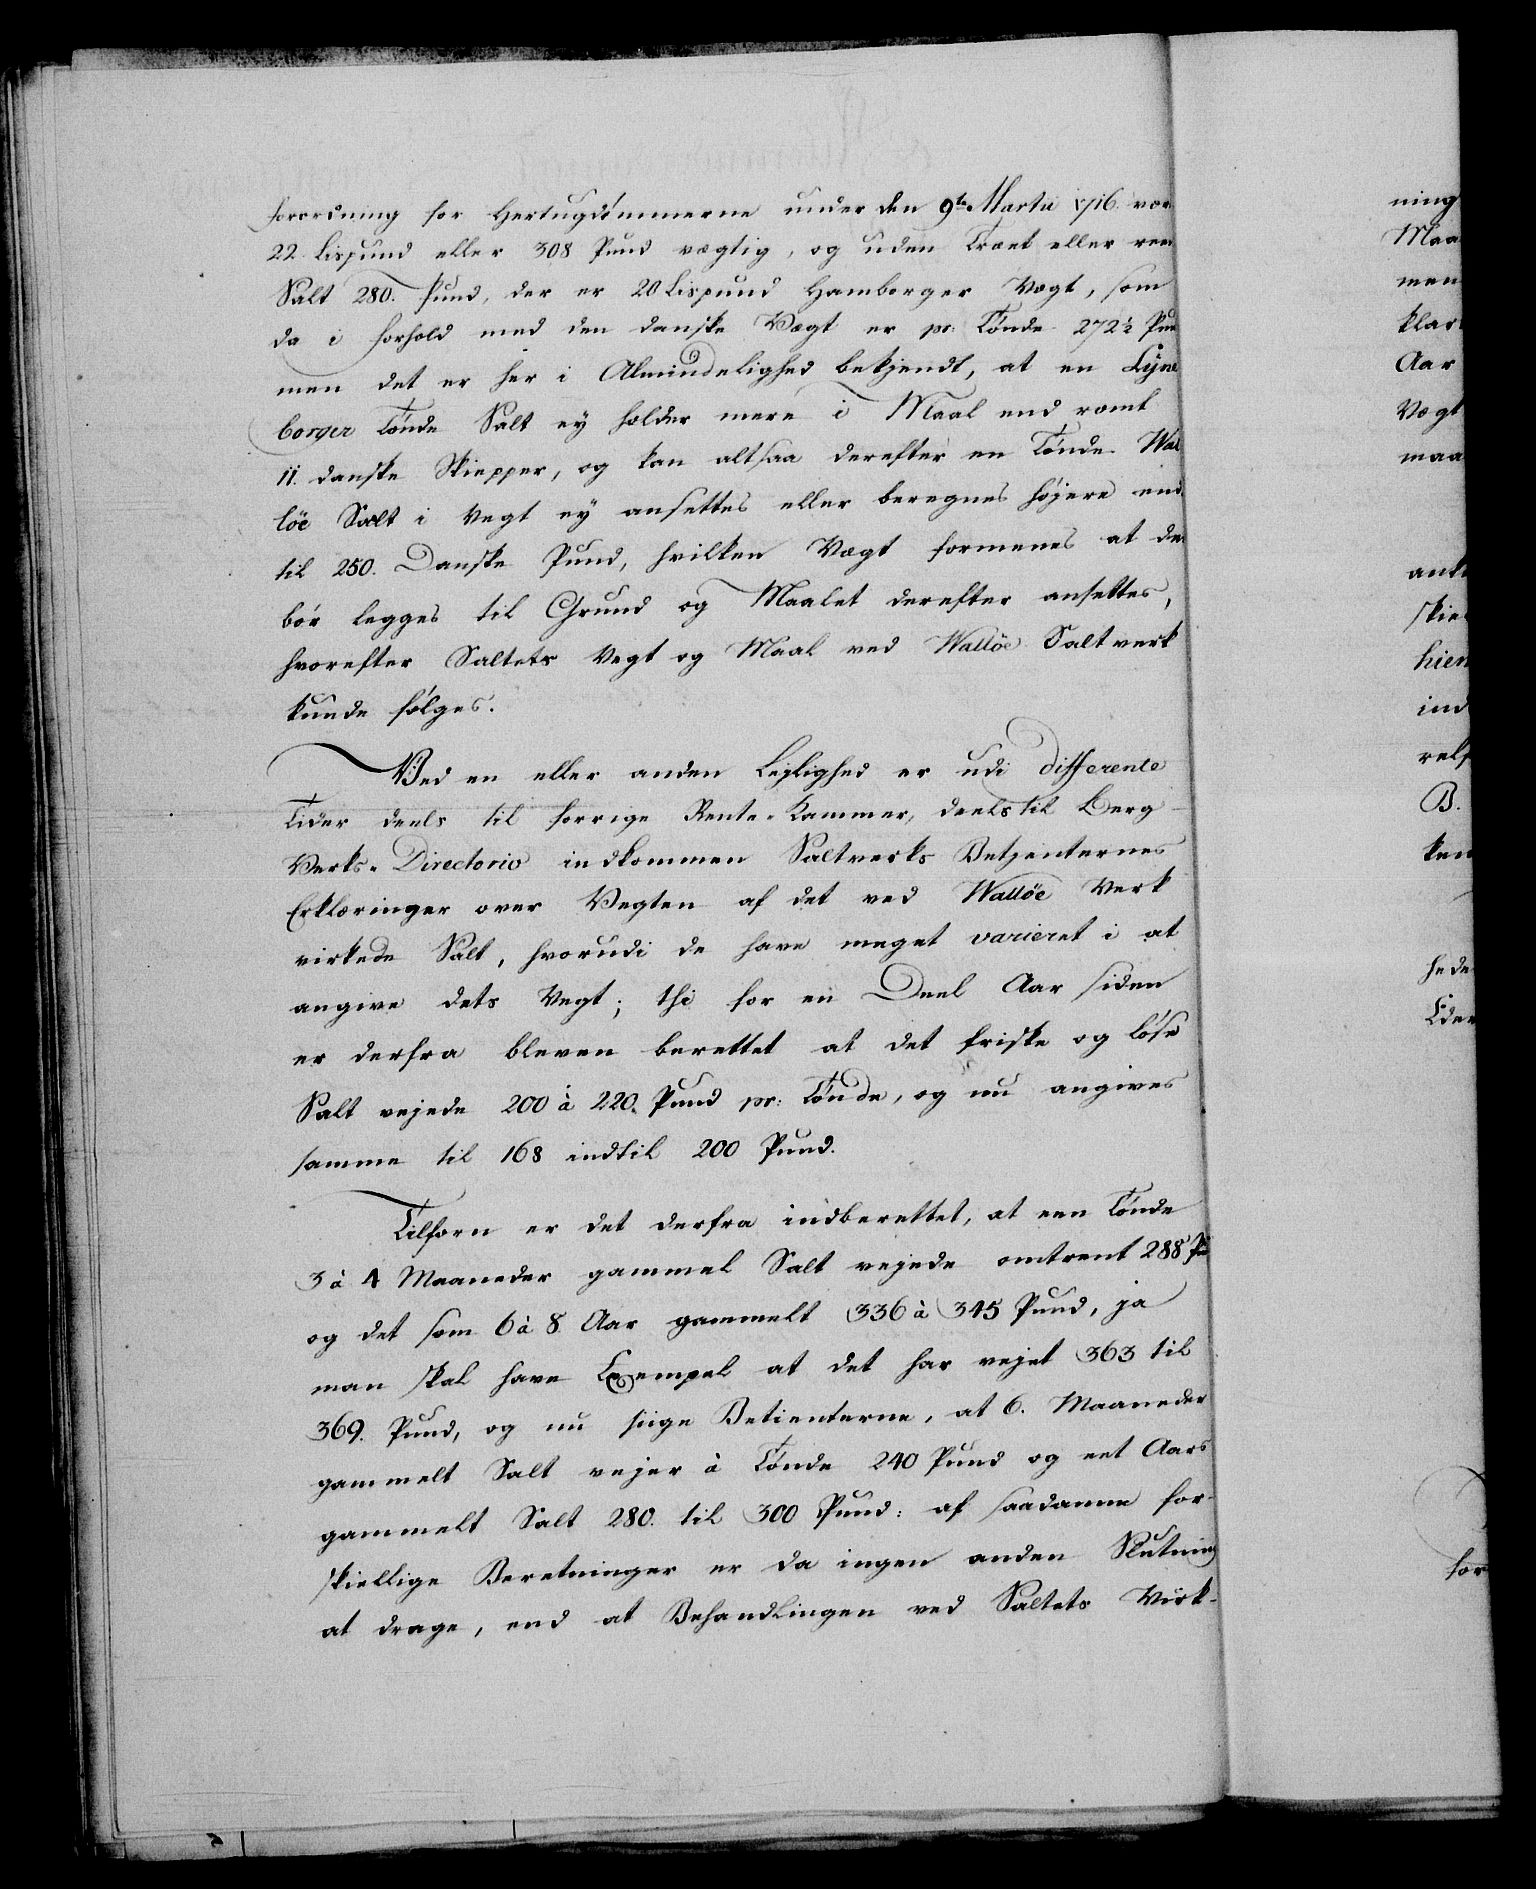 forordning for Hertugdömmerne under den 9de Martii 1716. vær
22 Lispund eller 308 Pund vægtig, og uden Træet eller reen
Salt 280. Pund, der er 20 Lispund Hamborger Vægt, som
da i forhold med den danske Vægt er pr: Tönde 272½ Pun
men det er her i Almindelighed bekjendt, at en Lyne
borger Tönde Salt ey holder mere i Maal end romt
11. danske Skiepper, og kan altsaa derefter en Tönde Wal
löe Salt i Vegt ey ansettes eller beregnes höjere end
til 250. Danske Pund, hvilken Vægt formenes at der
bör legges til Grund og Maalet derefter ansettes,
hvorefter Saltets Vegt og Maal ved Wallöe Saltverk
kunde fölges.
Ved en eller anden Lejlighed er udi differente
Tider deels til forrige Rente-Kammer, deels til Berg-
Verks-Directorio indkommen Saltverks Betjenternes
Erklæringer over Vegten af det ved Wallöe Verk
virkede Salt, hvorudi de have meget varieret i at
angive dets Vegt; thi for en Deel Aar siden
er derfra bleven berettet at det friske og löse
Salt vejede 200 à 220. Pund pr: Tönde, og nu angives
samme til 168 indtil 200 Pund.
Tilforn er det derfra indberettet, at een Tönde
3 à 4 Maaneder gammel Salt vejede omtrent 288 Pu
og det som 6 à 8 Aar gammelt 336 à 345 Pund, ja
man skal have Exempel at det har vejet 363 til
369. Pund, og nu siige Betienterne, at 6. Maaneder
gammelt Salt vejer à Tönde 240 Pund og eet Aars
gammelt Salt 280. til 300 Pund: af saadanne for-
skiellige Beretninger er da ingen anden Slutning
at drage, end at Behandlingen ved Saltets Virk-
ning
Maa
men
klar
Aar
Vægt
maa
ank
skie
hien
ind
relf
B.
ken
hede
Eder
for